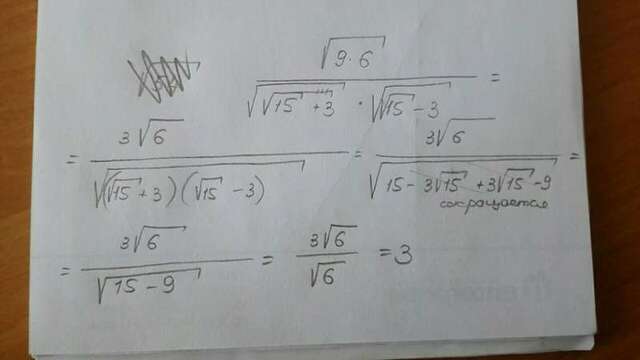 √(9·6) / (√(√15 + 3) · √(√15 - 3)) =
= 3√6 / √((√15 + 3)(√15 - 3)) = 3√6 / √(15 - 3√15 + 3√15 - 9) =
сокращается
= 3√6 / √(15 - 9) = 3√6 / √6 = 3